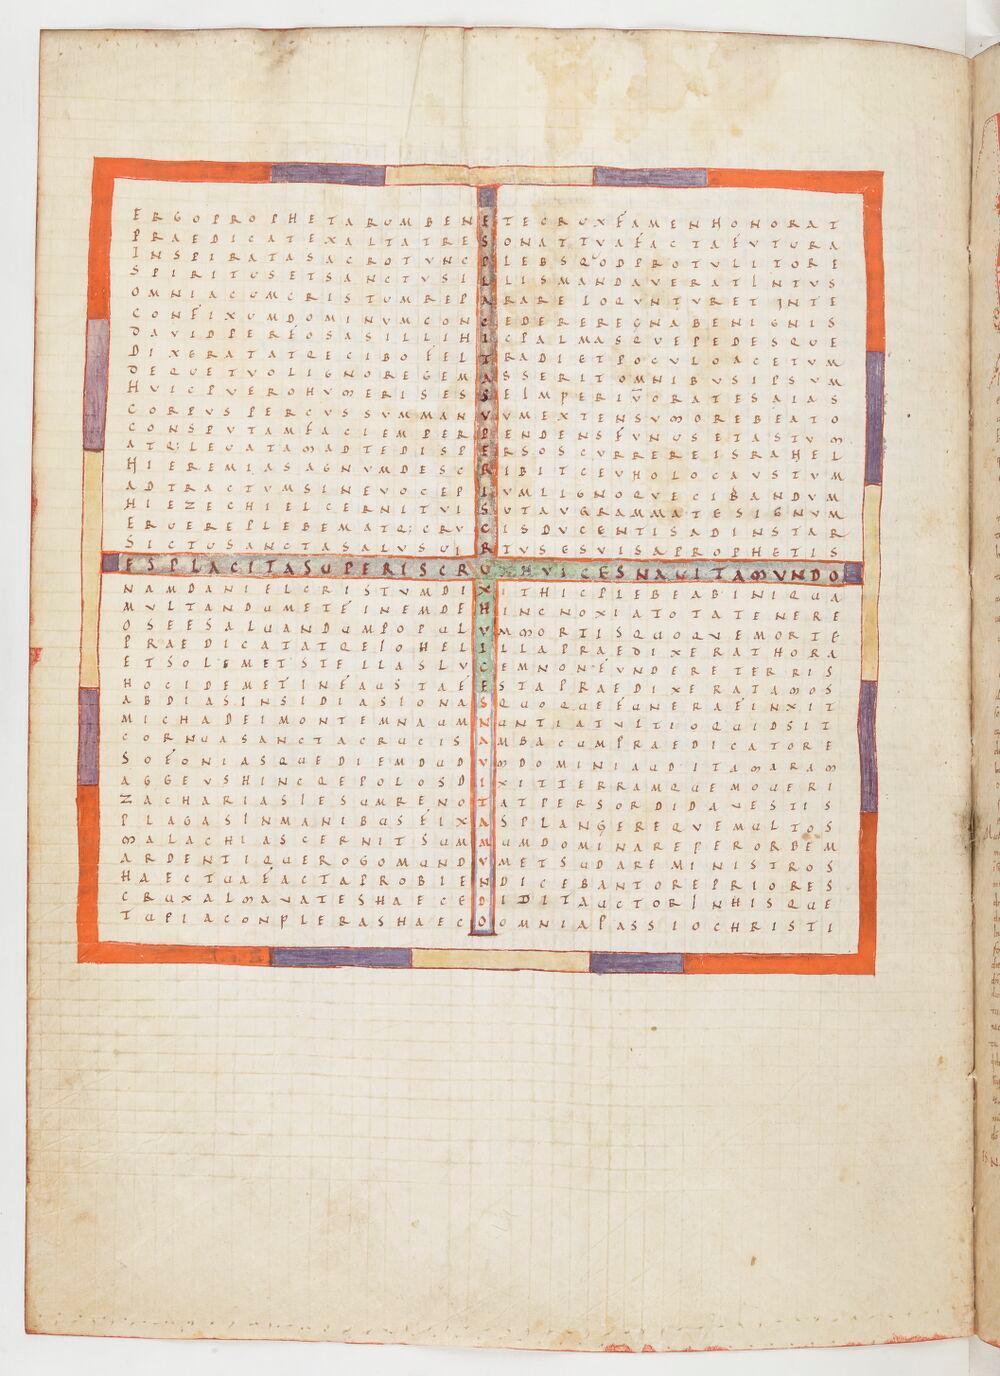 ERGOPROPHETARUMBENETECRUXFAMENHONORAT
PRAEDICATEXALTATRESONATTVAFACTAFUTURA
INSPIRATASACROTVNCPLEBSQODPROTULITORE
SPIRITUSETSANCTVSILLISMANDAVERATINTVS
OMNIACUMCRISTUMREPARARELOQVNTVRETINTE
CONFIXUMDOMINVMCONCEDEREREGNABENIGNIS
DAVIDPERFOSASILLIHICPALMASQVEPEDESQUE
DIXERATATQECIBOFELTRADIETPOCVLOACETVM
DEQUETVOLIGNOREGEMASSERITOMNIBVSIPSVM
HVICPVEROHVMERISESSEIMPERIVORATESAIAS
CORPVSPERCVSSVMMANVVMEXTENSVMOREBEATO
CONSPVTAMFACIEMPERPENDENSFVNUSETASTVM
ATQ:LEVATAMADTEDISPERSOSCVRREREISRAHEL
HIEREMIASAGNVMDESCRIBITCEVHOLOCAVSTVM
ADTRACTVMSINEVOCEPIVMLIGNOQVECIBANDVM
HIEZECHIELCERNITVISUTAVGRAMMATESIGNVM
ERVEREPLEBEMATQ:CRVCISDVCENTISADINSTAR
SICTUSANCTASALVSVIRTVSESVISAPROPHETIS
ESPLACITASUPERISCRUXHVICESNAVITAMVNDO
NAMDANIELCRISTVMDIXITHICPLEBEABINIQUA
MVLTANDUMETEINEMDEHINCNOXIATOTATENERE
OSEESALUANDUMPOPULVMMORTISQUOQVEMORTE
PRAEDICATATQEIOHELILLAPRAEDIXERATHORA
ETSOLEMETSTELLASLVCEMNONFVNDERETERRIS
HOCIDEMETINFAUSTAFEESTAPRAEDIXERATAMOS
ABDIASINSIDIASIONASQUOQUEFUNERAFINXIT
MICHADEIMONTEMNAUMNUNTIATVLTIOQUIDSIT
CORNUASANCTACRUCISAMBACUMPRAEDICATORE
SOFONIASQUEDIEMDUDVMDOMINIAUDITAMARAM
AGGEVSHINCQEPOLOSDIXITTERRAMQUEMOUERI
ZACHARIASIESUMRENOTATPERSORDIDAVESTIS
PLAGASINMANIBUSFIXASPLANGEREQVEMULTOS
MALACHIASCERNITSUMMUMDOMINAREPERORBEM
ARDENTIQUEROGOMUNDVMETSUDAREMINISTROS
HAECTUAFACTAPROBIENDICEBANTOREPRIORES
CRUXALMAVATESHAECEDIDITAUCTORINHISQUE
TUPIACONPLERASHAECOOMNIAPASSIOCHRISTI